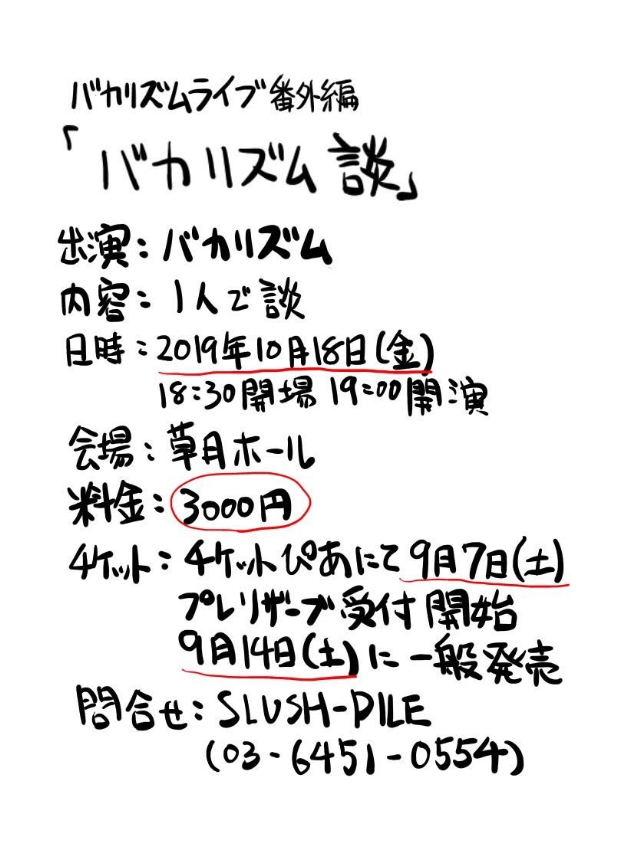 バカリズムライブ番外編
「バカリズム談」
出演：バカリズム
内容：1人で談
日時：2019年10月18日(金)
18:30開場 19:00開演
会場：草月ホール
料金：3000円
チケット：チケットぴあにて9月7日(土)
プレリザーブ受付開始
9月14日(土)に一般発売
問合せ：SLUSH-PILE
(03-6451-0554)